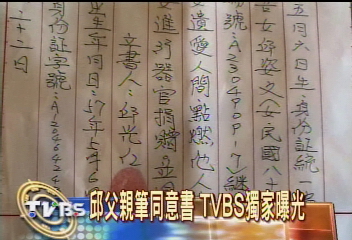 五月六日生，身份証統一
苦女邱姿文(女民國八十
號：A230490917)，繼
父遺愛人間，點燃他人
女進行器官捐贈。立
立書人：邱光仁
出生年月日：57年5月6
身份証字號：A12046424
二十二日
TVBS 邱父親筆同意書 TVBS獨家曝光